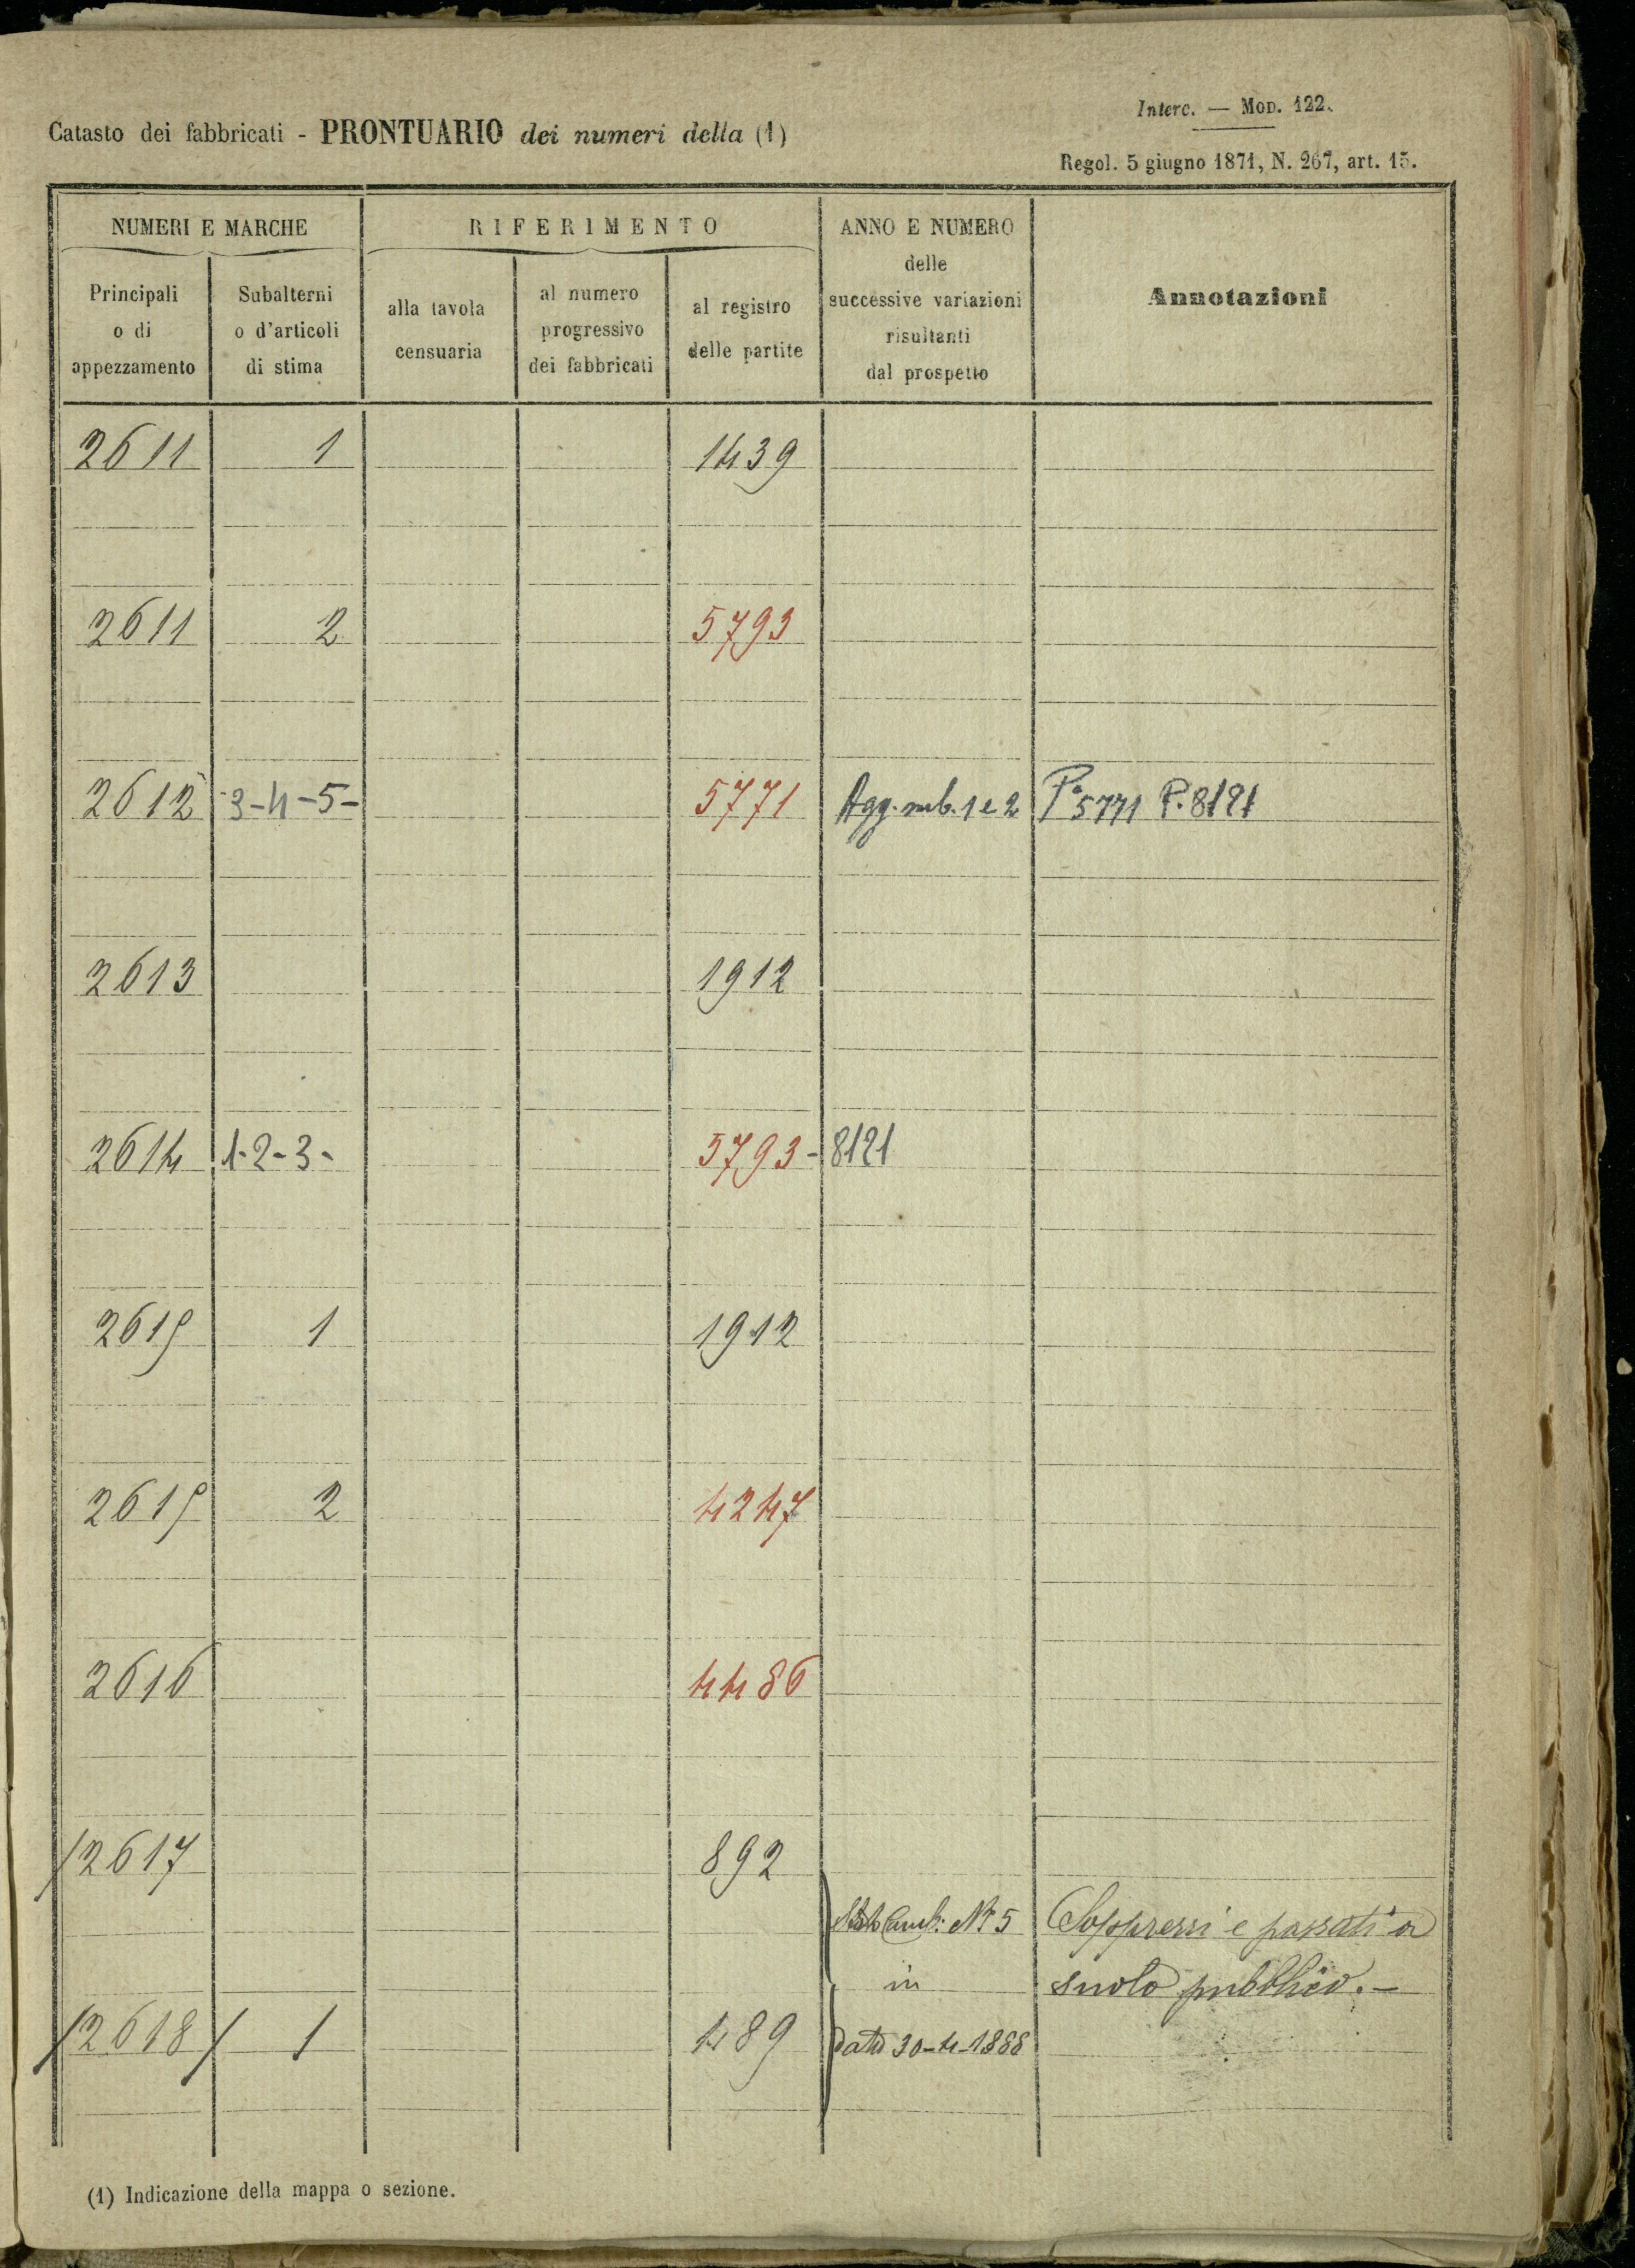 Interc. — Mod. 122.
Catasto dei fabbricati - PRONTUARIO dei numeri della (1)
Regol. 5 giugno 1871, N. 267, art. 15.
NUMERI E MARCHE
RIFERIMENTO
ANNO E NUMERO
delle
successive variazioni
risultanti
dal prospetto
Annotazioni
Principali
o di
appezzamento
Subalterni
o d'articoli
di stima
alla tavola
censuaria
al numero
progressivo
dei fabbricati
al registro
delle partite
2611 1 1439
2611 2 5793
2612 -3-4-5- 5771 Agg. sub. 1 e 2 Pª 5771 P. 8121
2613 1912
2614 1-2-3- 5793- 8121
2615 1 1912
2615 2 4247
2616 4486
/2617 892
Camb: Nº 5 Soppressi e passati a
in suolo pubblico. -
/2618 / 1 489 Data 30-4-1888
(1) Indicazione della mappa o sezione.